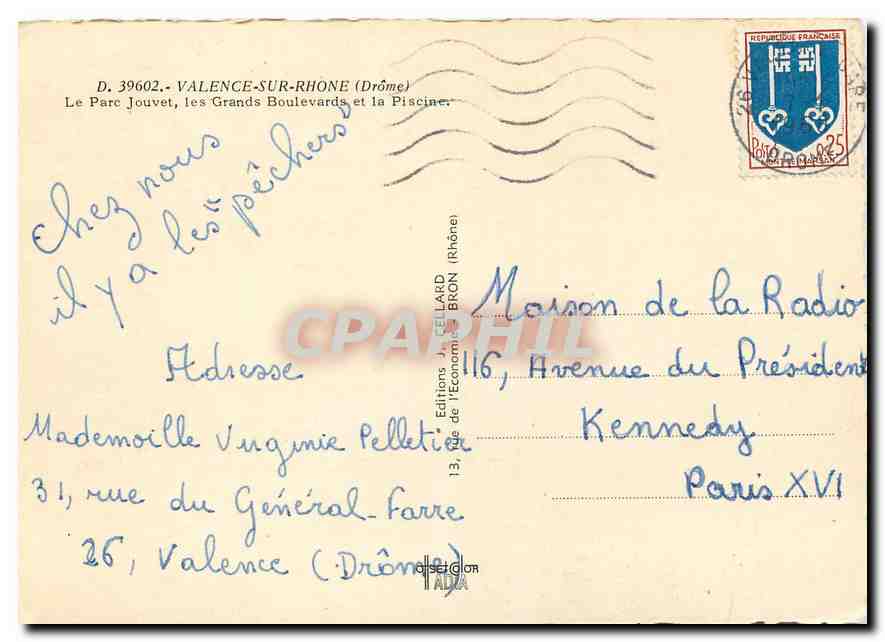 D. 39602.- VALENCE-SUR-RHONE (Drôme)
Le Parc Jouvet, les Grands Boulevards et la Piscine.
REPUBLIQUE FRANÇAISE
POSTES 0,25
MONT-DE-MARSAN
26
GARE
DROME
Chez nous
il y a les "pêchers"
Adresse
Mademoille Virginie Pelletier
31, rue du Général-Farre
26, Valence (Drôme)
Editions J. CELLARD
13, rue de l'Economie - BRON (Rhône)
Maison de la Radio
116, Avenue du Président
Kennedy
Paris XVI
CPAPHIL
OFFSETCOLOR
ADIA